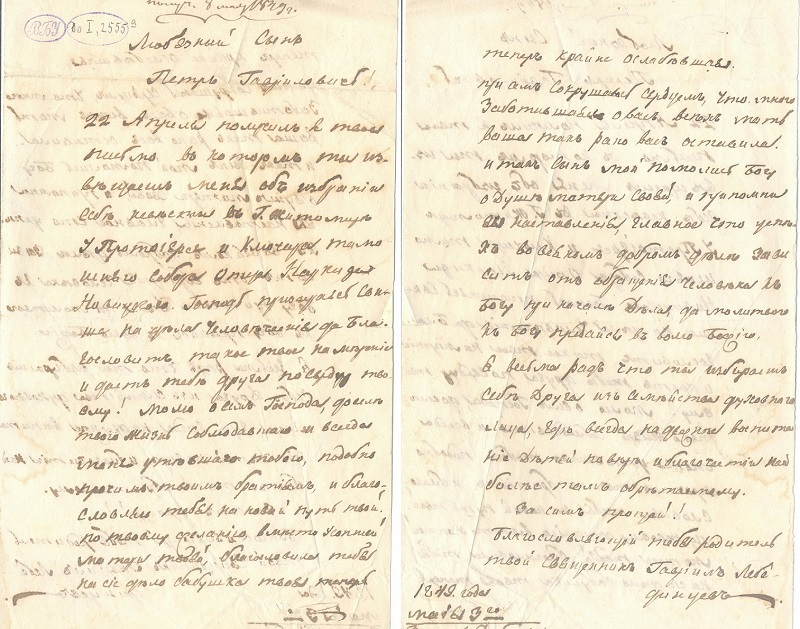 получ. 8 мая 1849 г.
ВБУ
до I, 2555 а
Любезный Сынъ
Петръ Гавриловичъ!
22 Апрѣля получилъ я твое
письмо въ которомъ ты из-
вѣщаешь меня объ избраніи
Себѣ невѣсты въ Г. Житомирѣ
У Протоіерея и Ключаря тамо
шняго Собора Отца
Новицкаго. Господь Свы-
ше на дѣла Человѣческія да Бла-
гословитъ такое твое намѣреніе
и дастъ тебѣ друга по сердцу тво
ему! Молю о семъ Господа
твою жизнь соблюдавшаго и всегда
тобою, подобно
прочимъ твоимъ братіямъ, и благо-
словляю тебя на новый путь твой.
По твоему желанію, вмѣсто усопшей
матери твоей, благословила тебя
на сіе дѣло бабушка твоя теперь
теперь крайне ослабѣвшая.
при семъ Сокрушаюсь Сердцемъ, что много
Заботившаяся о васъ всѣхъ мать
ваша такъ рано васъ оставила.
и такъ Сынъ мой помолись Богу
о Душѣ матери Своей, и припомни
ея наставленія, главное что успѣ-
хъ во всякомъ добромъ дѣлѣ Зави
ситъ отъ обращенія Человѣка къ
Богу при началѣ Дѣла, да молитвою
къ Богу предайсь въ волю Божію.
Я весьма радъ что ты избираешь
Себѣ Друга изъ Семейства духовнаго
лица, гдѣ всегда надежное воспита
ніе Дѣтей и благочестія наи
болѣе
За симъ прощай!
Благословляющій тебя родитель
твой Священникъ Гавріилъ Лебе-
динцевъ
1849 года
маія 3 го